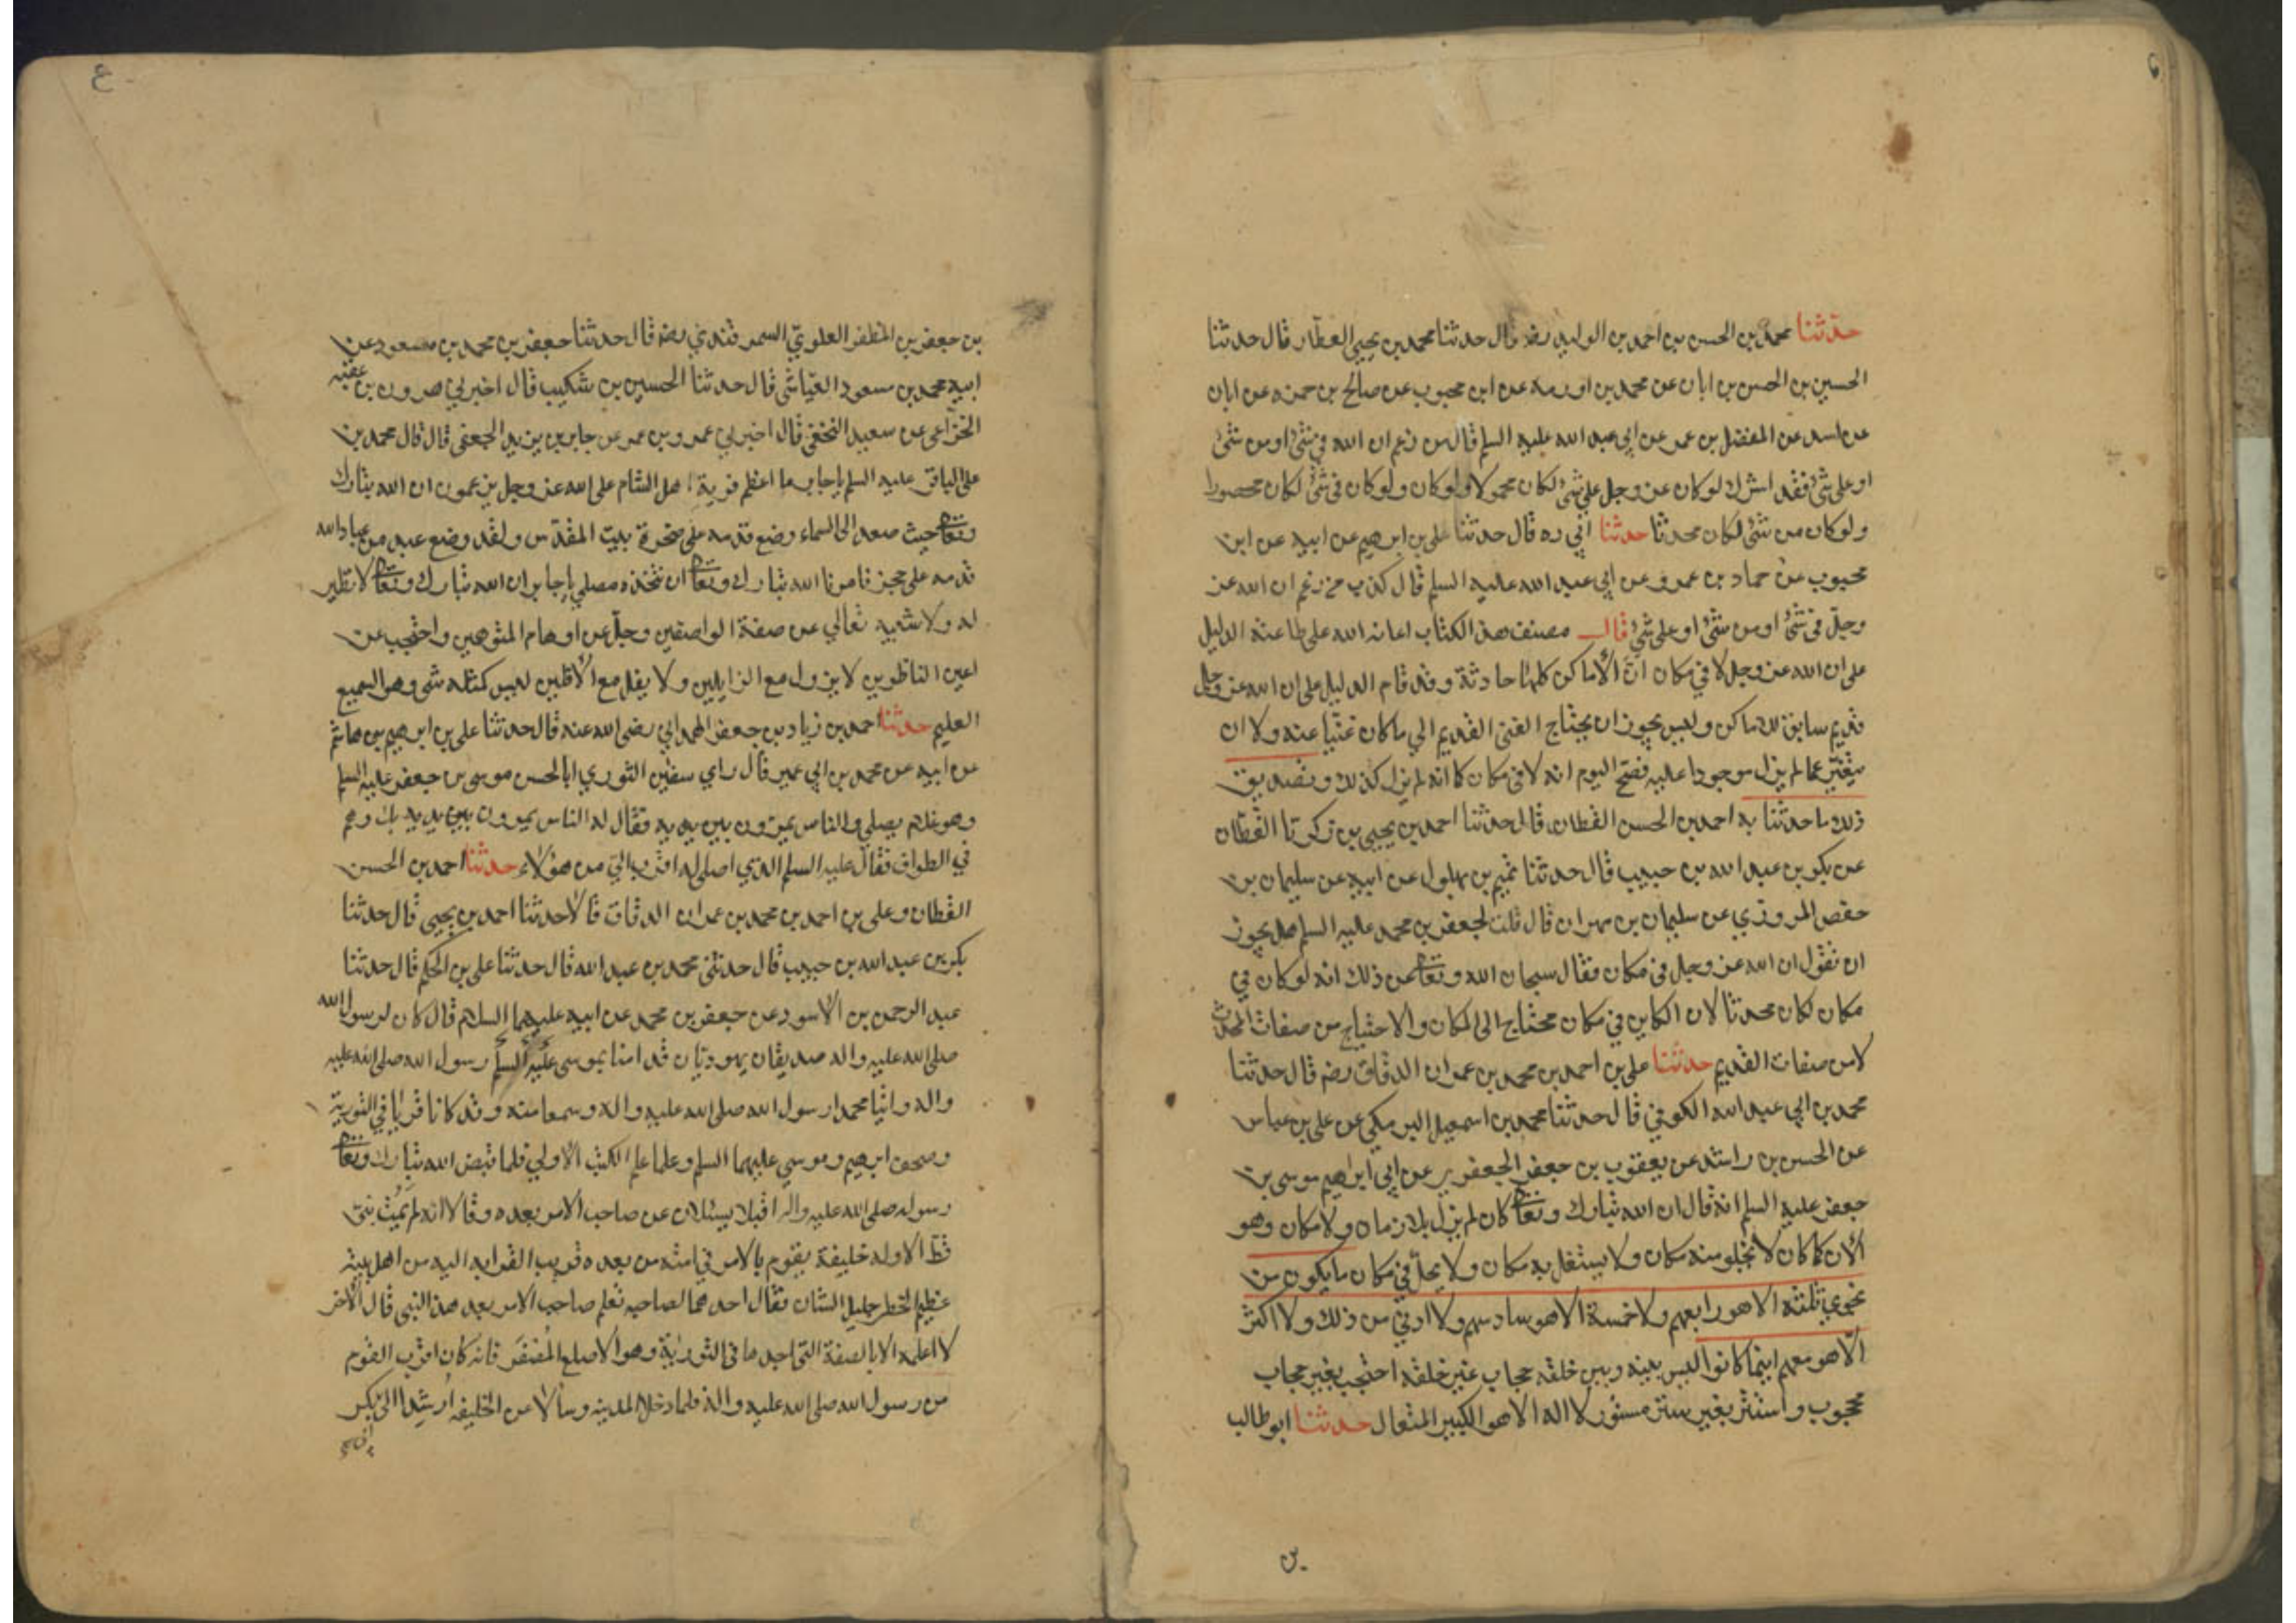 حدثنا محمد بن الحسن بن احمد بن الوليد رضه قال حدثنا محمد بن يحيى العطار قال حدثنا
الحسين بن الحسن بن ابان عن محمد بن اورمه عن ابن محبوب عن صالح بن حمزه عن ابان
عن اسد عن المفضل بن عمر عن ابي عبد الله عليه السلم قال من زعم ان الله في شئ او من شئ
او على شئ فقد اشرك لو كان عز وجل على شئ لكان محمولا ولو كان ولو كان في شئ لكان محصورا
ولو كان من شئ لكان محدثا حدثنا ابي ره قال حدثنا علي بن ابرهيم عن ابيه عن ابن
محبوب عن حماد بن عمرو عن ابي عبد الله عليه السلم قال كذب من زعم ان الله عز
وجل في شئ او من شئ او على شئ قال مصنف هذا الكتاب اعانه الله على طاعته الدليل
على ان الله عز وجل لا في مكان ان الأماكن كلها حادثة وقد قام الدليل على ان الله عز وجل
قديم سابق للاماكن وليس يجوز ان يحتاج الغني القديم الي ما كان غنيا عنه ولا ان
يتغير عما لم يزل موجودا عليه فصح اليوم انه لا في مكان كما انه لم يزل كذلك وتصديق
ذلك ما حدثنا به احمد بن الحسن القطان قال حدثنا احمد بن يحيى بن زكريا القطان
عن بكر بن عبد الله بن حبيب قال حدثنا تميم بن بهلول عن ابيه عن سليمان بن
حفص المروزي عن سليمان بن مهران قال قلت لجعفر بن محمد عليه السلم هل يجوز
ان نقول ان الله عز وجل في مكان فقال سبحان الله وتعا عن ذلك انه لو كان في
مكان لكان محدثا لان الكاين في مكان محتاج الى المكان والاحتياج من صفات المحدث
لا من صفات القديم حدثنا علي بن احمد بن محمد بن عمران الدقاق رضه قال حدثنا
محمد بن ابي عبد الله الكوفي قال حدثنا محمد بن اسمعيل البرمكي عن علي بن عباس
عن الحسن بن راشد عن يعقوب بن جعفر الجعفري عن ابي ابراهيم موسى بن
جعفر عليه السلم انه قال ان الله تبارك وتعا كان لم يزل بلا زمان ولا مكان وهو
الآن كما كان لا يخلو منه مكان ولا يشتغل به مكان ولا يحل في مكان ما يكون من
نجوي ثلثة الا هو رابعهم ولا خمسة الا هو سادسهم ولا ادني من ذلك ولا اكثر
الا هو معهم اينما كانوا ليس بينه وبين خلقه حجاب غير خلقه احتجب بغير حجاب
محجوب واستتر بغير ستر مستور لا اله الا هو الكبير المتعال حدثنا ابو طالب
بن جعفر بن المظفر العلوي السمرقندي رضه قال حدثنا جعفر بن محمد بن مسعود عن
ابيه محمد بن مسعود العياشي قال حدثنا الحسين بن شكيب قال اخبرني هرون بن عقبه
الخزاعي عن سعيد النخعي قال اخبرني عمرو بن عمر عن جابر بن يزيد الجعفي قال قال محمد بن
علي الباقر عليه السلم يا جابر ما اعظم فرية اهل الشام على الله عز وجل يزعمون ان الله تبارك
وتعا حيث صعد الى السماء وضع قدمه على صخرة بيت المقدس ولقد وضع عبد من عباد الله
قدمه على حجر فامرنا الله تبارك وتعا ان نتخذه مصلي يا جابر ان الله تبارك وتعا لا نظير
له ولا شبيه تعالي عن صفة الواصفين وجل عن اوهام المتوهمين واحتجب عن
اعين الناظرين لا يزول مع الزايلين ولا يفل مع الأفلين ليس كمثله شئ وهو السميع
العليم حدثنا احمد بن زياد بن جعفر الهمداني رضى الله عنه قال حدثنا علي بن ابرهيم بن هاشم
عن ابيه عن محمد بن ابي عمير قال راي سفين الثوري ابا الحسن موسى بن جعفر عليه السلم
وهو غلام يصلي والناس يمرون بين يديه فقال له الناس يمرون بين يديك وهم
في الطواف فقال عليه السلم الذي اصلي له اقرب الي من هؤلاء حدثنا احمد بن الحسن
القطان وعلي بن احمد بن محمد بن عمران الدقاق قالا حدثنا احمد بن يحيى قال حدثنا
بكر بن عبد الله بن حبيب قال حدثني محمد بن عبد الله قال حدثنا علي بن الحكم قال حدثنا
عبد الرحمن بن الأسود عن جعفر بن محمد عن ابيه عليهما السلام قال كان لرسول الله
صلى الله عليه واله صديقان يهوديان قد امنا بموسى عليه السلم رسول الله صلى الله عليه
واله واتيا محمدا رسول الله صلى الله عليه واله وسمعا منه وقد كانا قرأا في التورية
وصحف ابرهيم وموسي عليهما السلم وعلما علم الكتب الأولي فلما قبض الله تبارك وتعا
رسوله صلى الله عليه واله اقبلا يسئلان عن صاحب الأمر بعده وقالا انه لم يمت نبي
قط الا وله خليفة يقوم بالامر في امته من بعده قريب القرابه اليه من اهل بيته
عظيم الخطر جليل الشان فقال احدهما لصاحبه تعلم صاحب الامر بعد هذا النبي قال الأخر
لا اعلمه الا بالصفة التي اجدها في التورية وهو الاصلع المصفر فانه كان اقرب القوم
من رسول الله صلى الله عليه واله فلما دخلا المدينه وسألا عن الخليفه ارشدا الى ابي بكر